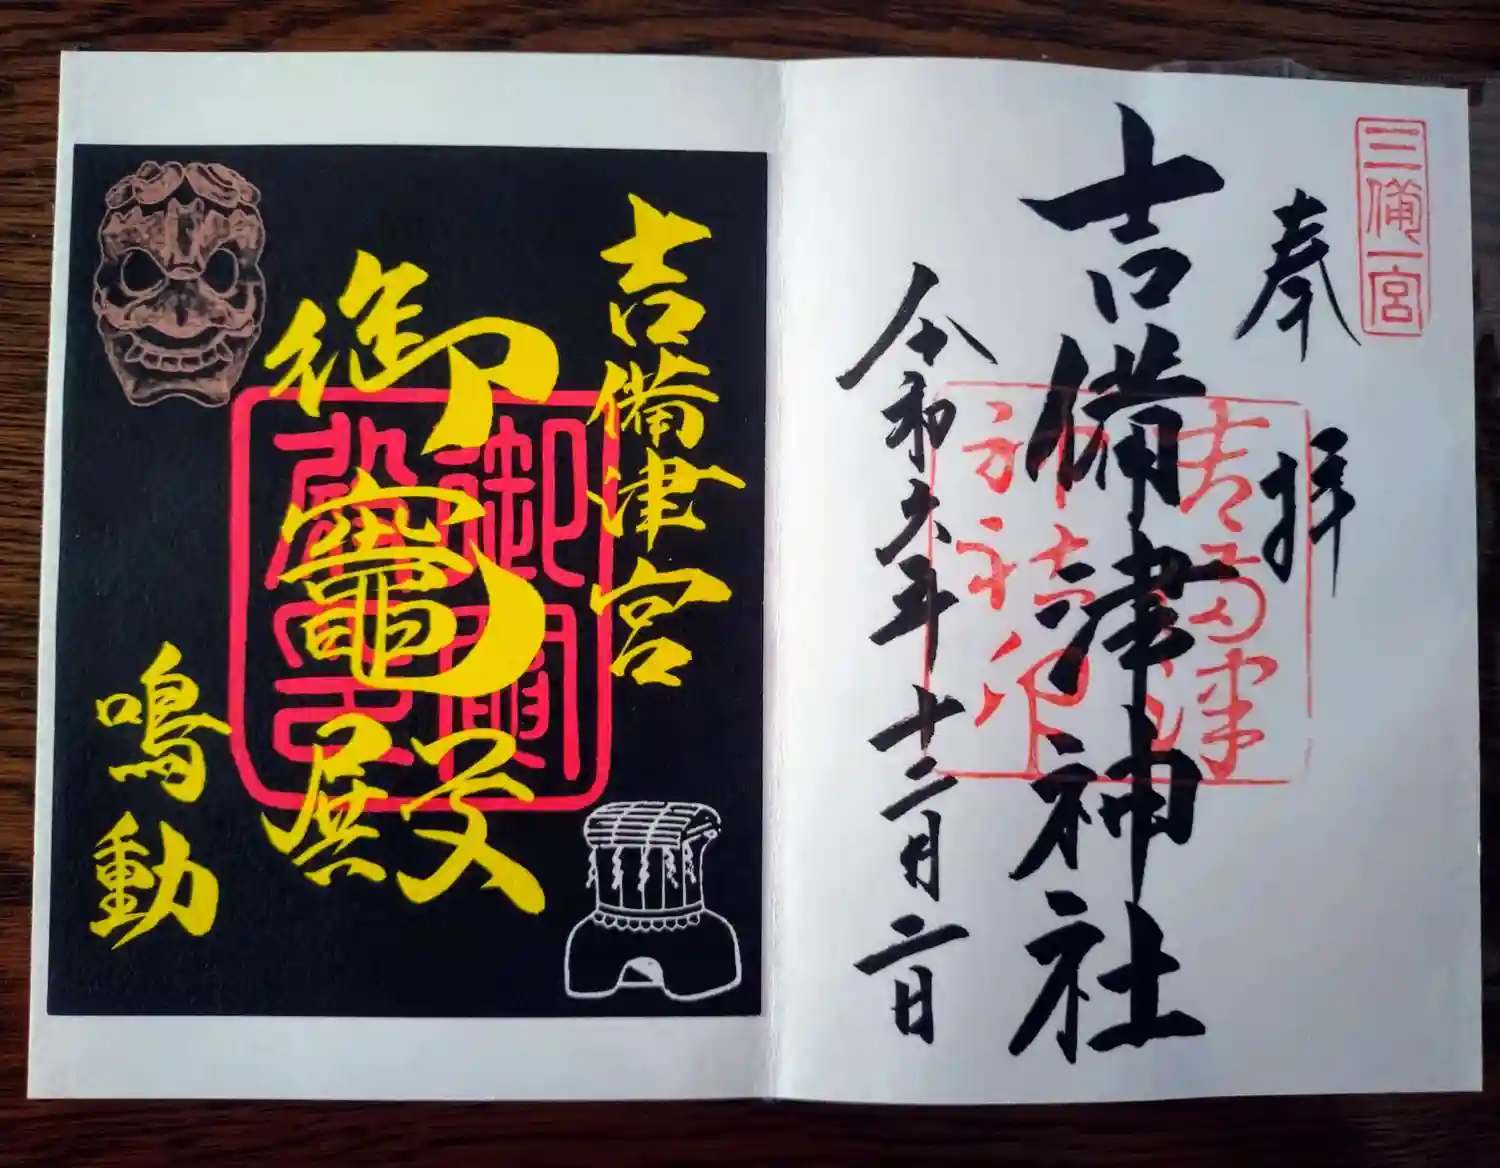 三備一宮
奉拝
吉備津神社
吉備津
神社
令和六年十二月二日
吉備津宮
御竈殿
鳴動